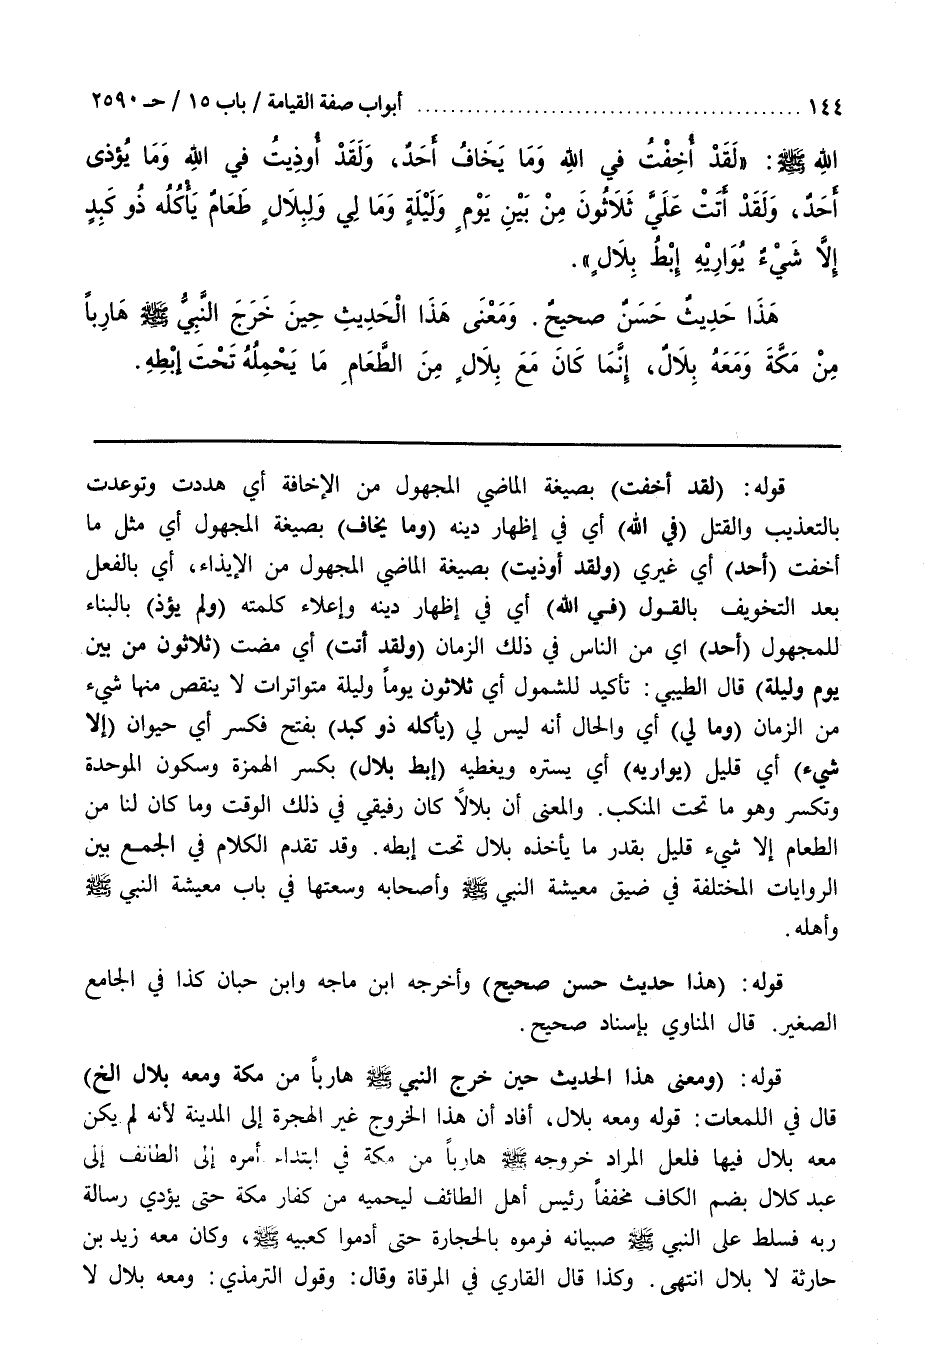 ١٤٤ ........................................ أبواب صفة القيامة / باب ١٥ / حـ ٢٥٩٠
اللهِ ﷺ: «لَقَدْ أُخِفْتُ في اللهِ وَمَا يَخَافُ أَحَدٌ، وَلَقَدْ أُوذِيتُ في اللهِ وَمَا يُؤذى
أَحَدٌ، وَلَقَدْ أَتَتْ عَلَيَّ ثَلَاثُونَ مِنْ بَيْنِ يَوْمٍ وَلَيْلَةٍ وَمَا لِي وَلِبِلَالٍ طَعَامٌ يَأْكُلُه ذُو كَبِدٍ
إِلَّا شَيْءٌ يُوَارِيْهِ إِبْطُ بِلَالٍ».
هَذَا حَدِيثٌ حَسَنٌ صحيحٌ. وَمَعْنَى هَذَا الْحَدِيثِ حِينَ خَرَجَ النَّبِيُّ ﷺ هَارِباً
مِنْ مَكَّةَ وَمَعَهُ بِلَالٌ، إِنَّمَا كَانَ مَعَ بِلَالٍ مِنَ الطَّعَامِ مَا يَحْمِلُهُ تَحْتَ إبْطِهِ.
قوله: (لقد أخفت) بصيغة الماضي المجهول من الإخافة أي هددت وتوعدت
بالتعذيب والقتل (في الله) أي في إظهار دينه (وما يخاف) بصيغة المجهول أي مثل ما
أخفت (أحد) أي غيري (ولقد أوذيت) بصيغة الماضي المجهول من الإيذاء، أي بالفعل
بعد التخويف بالقول (في الله) أي في إظهار دينه وإعلاء كلمته (ولم يؤذ) بالبناء
للمجهول (أحد) اي من الناس في ذلك الزمان (ولقد أتت) أي مضت (ثلاثون من بين
يوم وليلة) قال الطيبي: تأكيد للشمول أي ثلاثون يوماً وليلة متواترات لا ينقص منها شيء
من الزمان (وما لي) أي والحال أنه ليس لي (يأكله ذو كبد) بفتح فكسر أي حيوان (إلا
شيء) أي قليل (يواريه) أي يستره ويغطيه (إبط بلال) بكسر الهمزة وسكون الموحدة
وتكسر وهو ما تحت المنكب. والمعنى أن بلالاً كان رفيقي في ذلك الوقت وما كان لنا من
الطعام إلا شيء قليل بقدر ما يأخذه بلال تحت إبطه. وقد تقدم الكلام في الجمع بين
الروايات المختلفة في ضيق معيشة النبي ﷺ وأصحابه وسعتها في باب معيشة النبي ﷺ
وأهله.
قوله: (هذا حديث حسن صحيح) وأخرجه ابن ماجه وابن حبان كذا في الجامع
الصغير. قال المناوي بإسناد صحيح.
قوله: (ومعنى هذا الحديث حين خرج النبي ﷺ هارباً من مكة ومعه بلال الخ)
قال في اللمعات: قوله ومعه بلال، أفاد أن هذا الخروج غير الهجرة إلى المدينة لأنه لم يكن
معه بلال فيها فلعل المراد خروجه ﷺ هارباً من مكة في ابتداء أمره إلى الطائف إلى
عبد كلال بضم الكاف مخففاً رئيس أهل الطائف ليحميه من كفار مكة حتى يؤدي رسالة
ربه فسلط على النبي ﷺ صبيانه فرموه بالحجارة حتى أدموا كعبيه ﷺ، وكان معه زيد بن
حارثة لا بلال انتهى. وكذا قال القاري في المرقاة وقال: وقول الترمذي: ومعه بلال لا